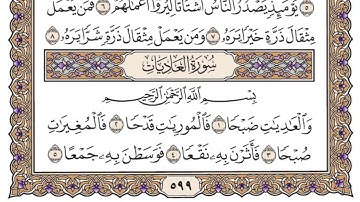 ٥ يَوْمَئِذٍ يَصْدُرُ النَّاسُ أَشْتَاتًا لِّيُرَوْا أَعْمَالَهُمْ ٦ فَمَن يَعْمَلْ
مِثْقَالَ ذَرَّةٍ خَيْرًا يَرَهُ ٧ وَمَن يَعْمَلْ مِثْقَالَ ذَرَّةٍ شَرًّا يَرَهُ ٨
سُورَةُ العَادِيَاتِ
بِسْمِ اللَّهِ الرَّحْمَٰنِ الرَّحِيمِ
وَالْعَادِيَاتِ ضَبْحًا ١ فَالْمُورِيَاتِ قَدْحًا ٢ فَالْمُغِيرَاتِ
صُبْحًا ٣ فَأَثَرْنَ بِهِ نَقْعًا ٤ فَوَسَطْنَ بِهِ جَمْعًا ٥
٥٩٩